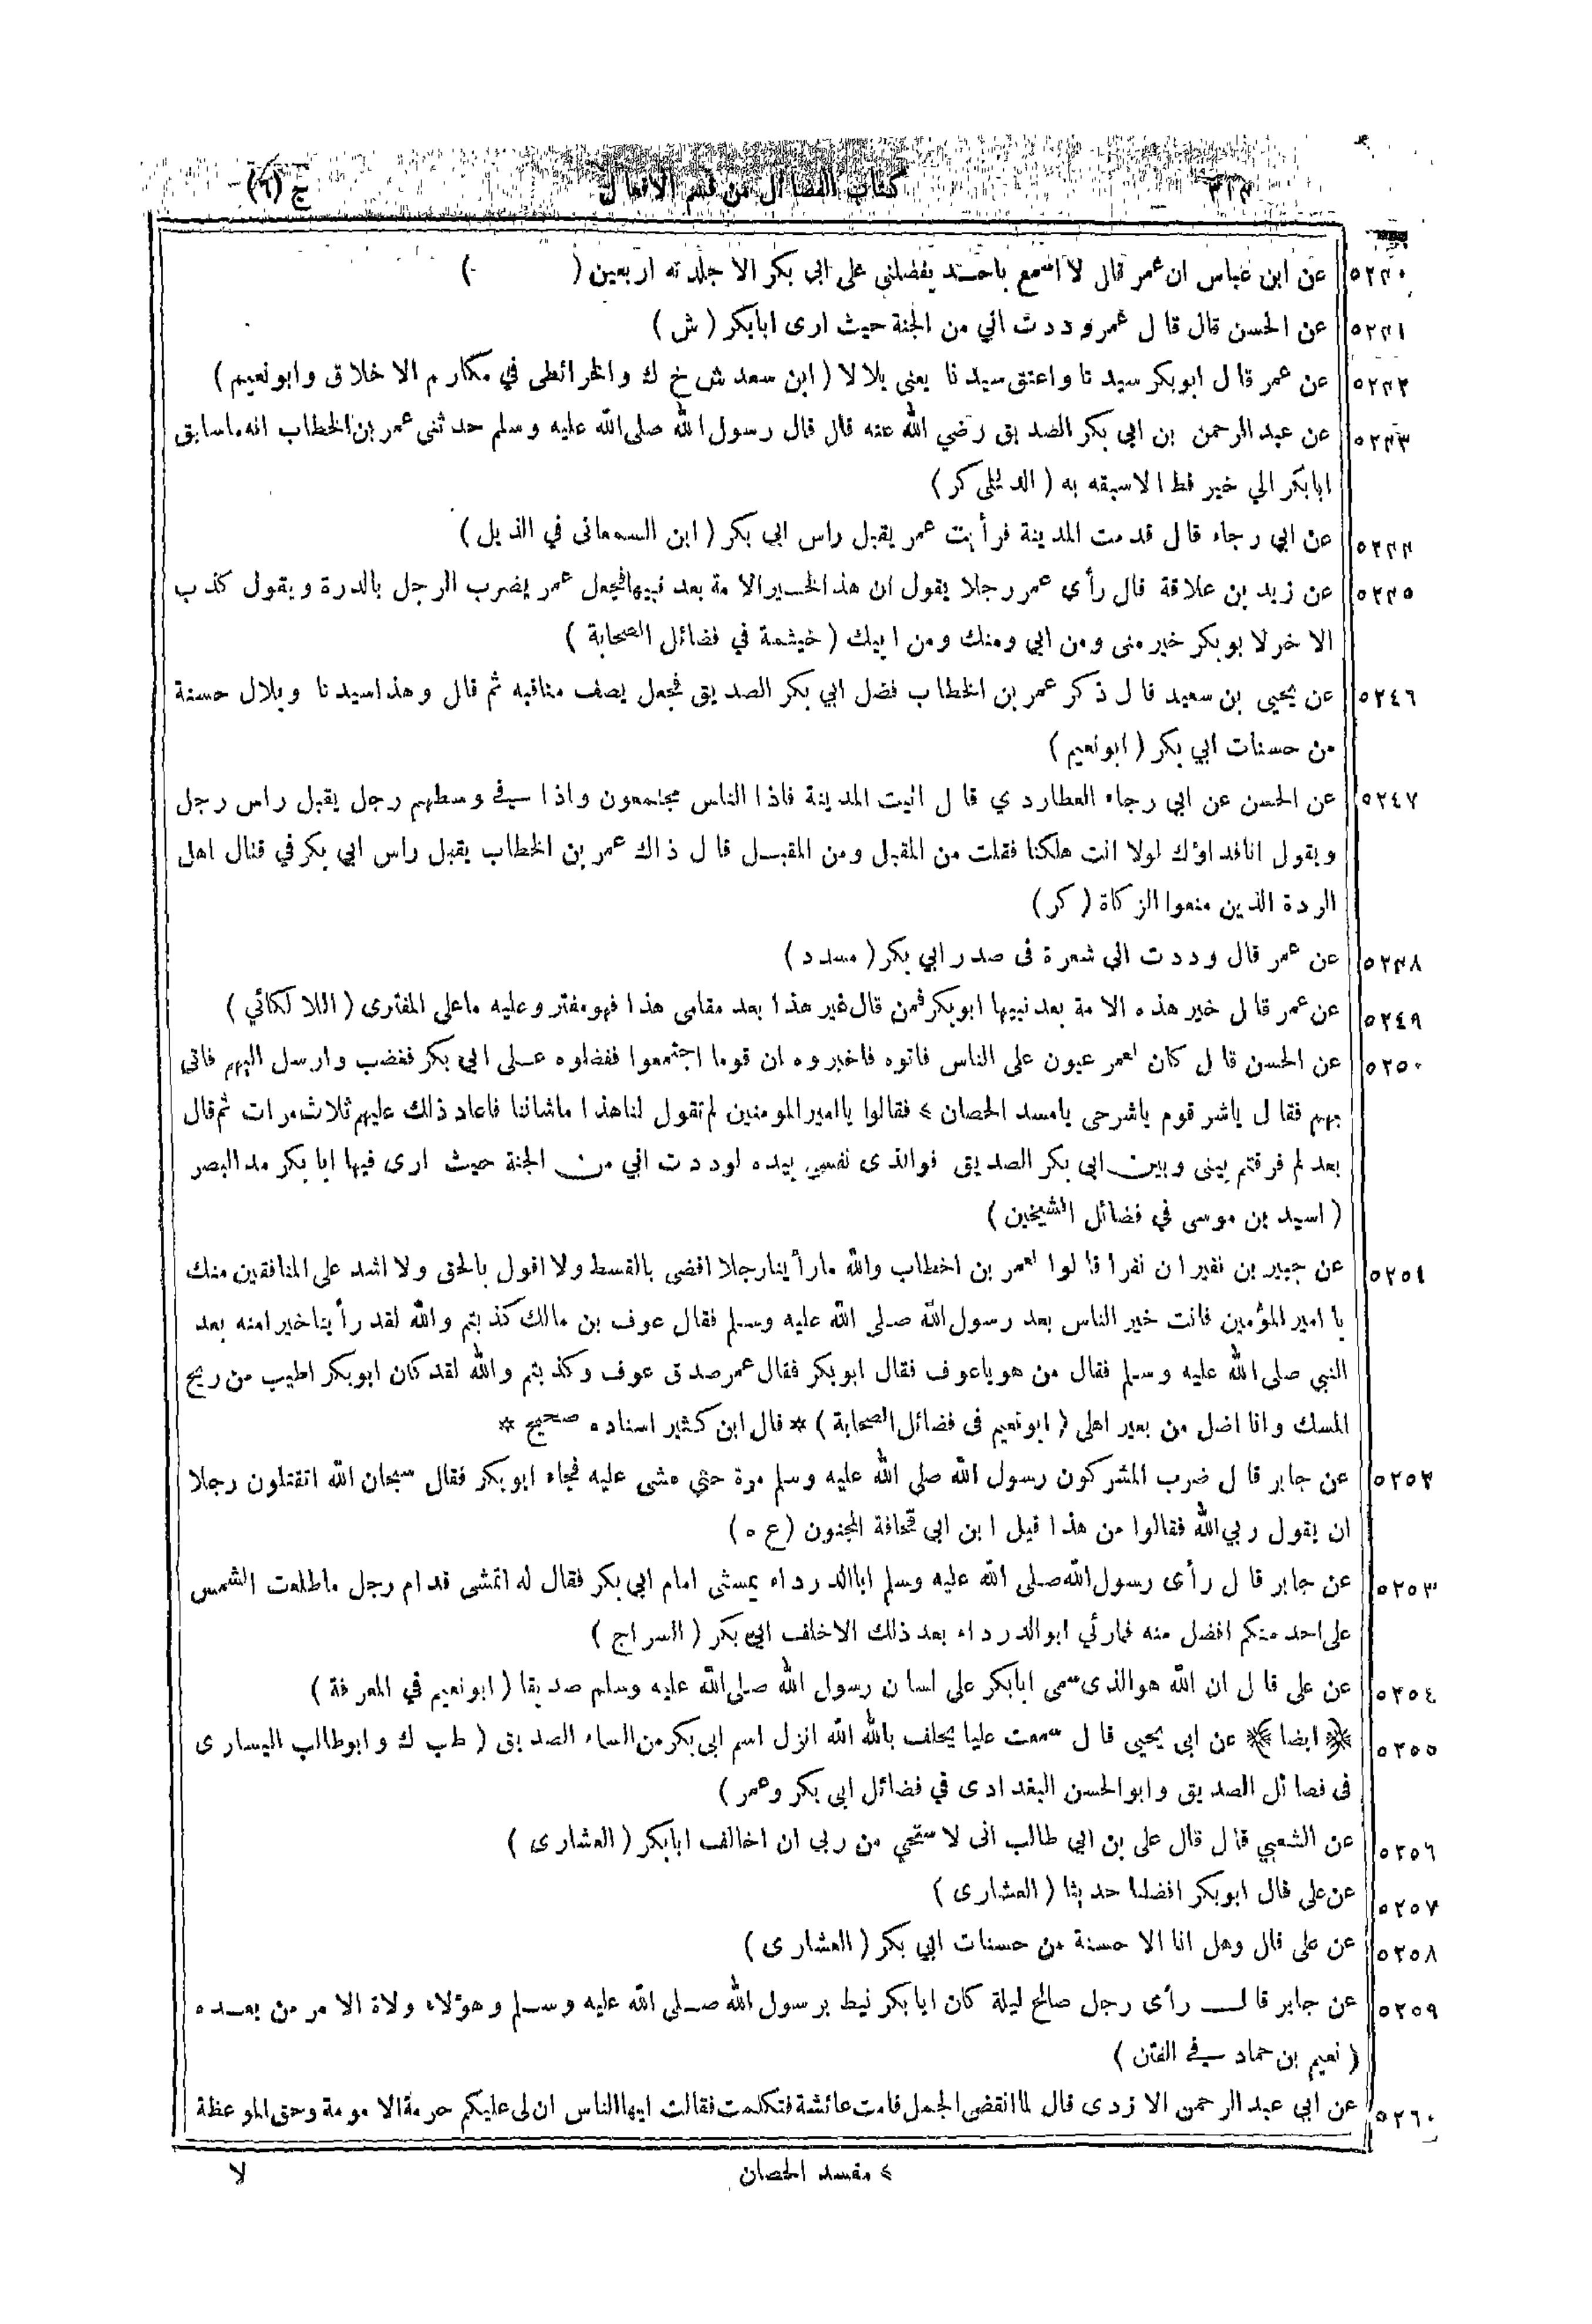 كتاب الفضائل من قسم الافعال ج (٦)
٥٢٤٠ عن ابن عباس ان عمر قال لا اسمع باحد يفضلني على ابي بكر الا جلدته اربعين ( )
٥٢٤١ عن الحسن قال قال عمر وددت اني من الجنة حيث ارى ابابكر (ش)
٥٢٤٢ عن عمر قال ابوبكر سيدنا واعتق سيدنا يعنى بلالا (ابن سعد ش خ ك والخرائطى في مكارم الاخلاق وابونعيم)
٥٢٤٣ عن عبدالرحمن بن ابي بكر الصديق رضي الله عنه قال قال رسول الله صلى الله عليه وسلم حدثنى عمر بن الخطاب انه ماسابق
ابابكر الي خير قط الاسبقه به (الديلمي كر)
٥٢٤٤ عن ابي رجاء قال قدمت المدينة فرأيت عمر يقبل راس ابي بكر (ابن السمعانى في الذيل)
٥٢٤٥ عن زيد بن علاقة قال رأى عمر رجلا يقول ان هذا لخير الامة بعد نبيها فجعل عمر يضرب الرجل بالدرة ويقول كذب
الاخر لابوبكر خير منى ومن ابي ومنك ومن ابيك (خيثمة في فضائل الصحابة)
٥٢٤٦ عن يحيى بن سعيد قال ذكر عمر بن الخطاب فضل ابي بكر الصديق فجعل يصف مناقبه ثم قال وهذا سيدنا وبلال حسنة
من حسنات ابي بكر (ابونعيم)
٥٢٤٧ عن الحسن عن ابي رجاء العطاردي قال اتيت المدينة فاذا الناس مجتمعون واذا في وسطهم رجل يقبل راس رجل
ويقول انافداؤك لولا انت هلكنا فقلت من المقبل ومن المقبل قال ذاك عمر بن الخطاب يقبل راس ابي بكر في قتال اهل
الردة الذين منعوا الزكاة (كر)
٥٢٤٨ عن عمر قال وددت انى شعرة فى صدر ابي بكر (مسدد)
٥٢٤٩ عن عمر قال خير هذه الامة بعد نبيها ابوبكر فمن قال غير هذا بعد مقامى هذا فهو مفتر وعليه ماعلى المفترى (اللالكائي)
٥٢٥٠ عن الحسن قال كان لعمر عيون على الناس فاتوه فاخبروه ان قوما اجتمعوا ففضلوه على ابي بكر فغضب وارسل اليهم فاتي
بهم فقال ياشر قوم ياشرحى يامسد الحصان ٤ فقالوا ياامير المومنين لم تقول لنا هذا ماشاننا فاعاد ذلك عليهم ثلاث مرات ثم قال
بعد لم فرقتم بينى وبين ابى بكر الصديق فوالذى نفسي بيده لوددت اني من الجنة حيث ارى فيها ابا بكر مد البصر
(اسيد بن موسى في فضائل الشيخين)
٥٢٥١ عن جبير بن نفير ان نفرا قالوا لعمر بن اخطاب والله مارأينارجلا اقضى بالقسط ولا اقول بالحق ولا اشد على المنافقين منك
يا امير المؤمنين فانت خير الناس بعد رسول الله صلى الله عليه وسلم فقال عوف بن مالك كذبتم والله لقد رأيناخيرامنه بعد
النبي صلى الله عليه وسلم فقال من هو ياعوف فقال ابوبكر فقال عمر صدق عوف وكذبتم والله لقد كان ابوبكر اطيب من ريح
المسك وانا اضل من بعير اهلى (ابونعيم فى فضائل الصحابة) * قال ابن كثير اسناده صحيح *
٥٢٥٢ عن جابر قال ضرب المشركون رسول الله صلى الله عليه وسلم مرة حتي غشى عليه فجاء ابوبكر فقال سبحان الله اتقتلون رجلا
ان يقول ربي الله فقالوا من هذا قيل ابن ابى قحافة المجنون (ع ه)
٥٢٥٣ عن جابر قال رأى رسول الله صلى الله عليه وسلم اباالدرداء يمشى امام ابي بكر فقال له اتمشى قدام رجل ماطلعت الشمس
على احد منكم افضل منه فمارئي ابوالدرداء بعد ذلك الاخلف ابي بكر (السراج)
٥٢٥٤ عن على قال ان الله هوالذى سمى ابابكر على لسان رسول الله صلى الله عليه وسلم صديقا (ابونعيم في المعرفة)
٥٢٥٥ ﴿ ايضا ﴾ عن ابي يحيى قال سمعت عليا يحلف بالله الله انزل اسم ابى بكر من السماء الصديق (طب ك وابوطالب اليسارى
فى فضائل الصديق وابوالحسن البغدادى في فضائل ابي بكر وعمر)
٥٢٥٦ عن الشعبي قال قال على بن ابي طالب انى لاستحي من ربي ان اخالف ابابكر (العشارى)
٥٢٥٧ عن على قال ابوبكر افضلنا حديثا (العشارى)
٥٢٥٨ عن على قال وهل انا الا حسنة من حسنات ابي بكر (العشارى)
٥٢٥٩ عن جابر قال رأى رجل صالح ليلة كان ابابكر نيط برسول الله صلى الله عليه وسلم وهؤلاء ولاة الامر من بعده
(نعيم بن حماد في الفتن)
٥٢٦٠ عن ابي عبدالرحمن الازدى قال لما انقضى الجمل قامت عائشة فتكلمت فقالت ايها الناس ان لى عليكم حرمة الامومة وحق الموعظة
٤ مفسد الحصان
لا